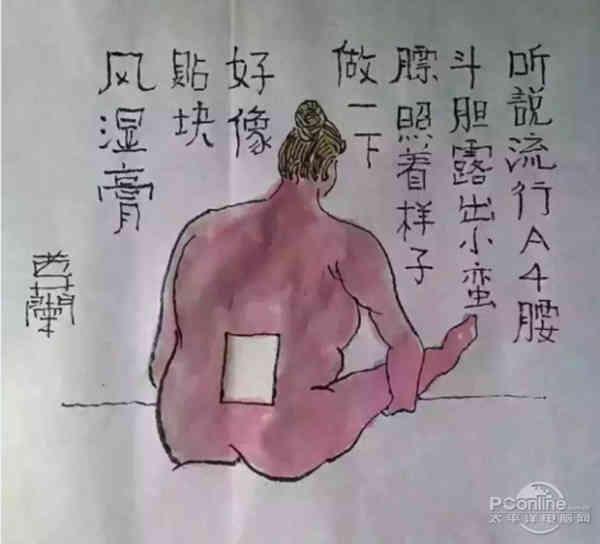 听説流行A4腰
斗胆露出小蛮
膘照着样子
做一下
好像
貼块
风湿膏
PConline
太平洋电脑网